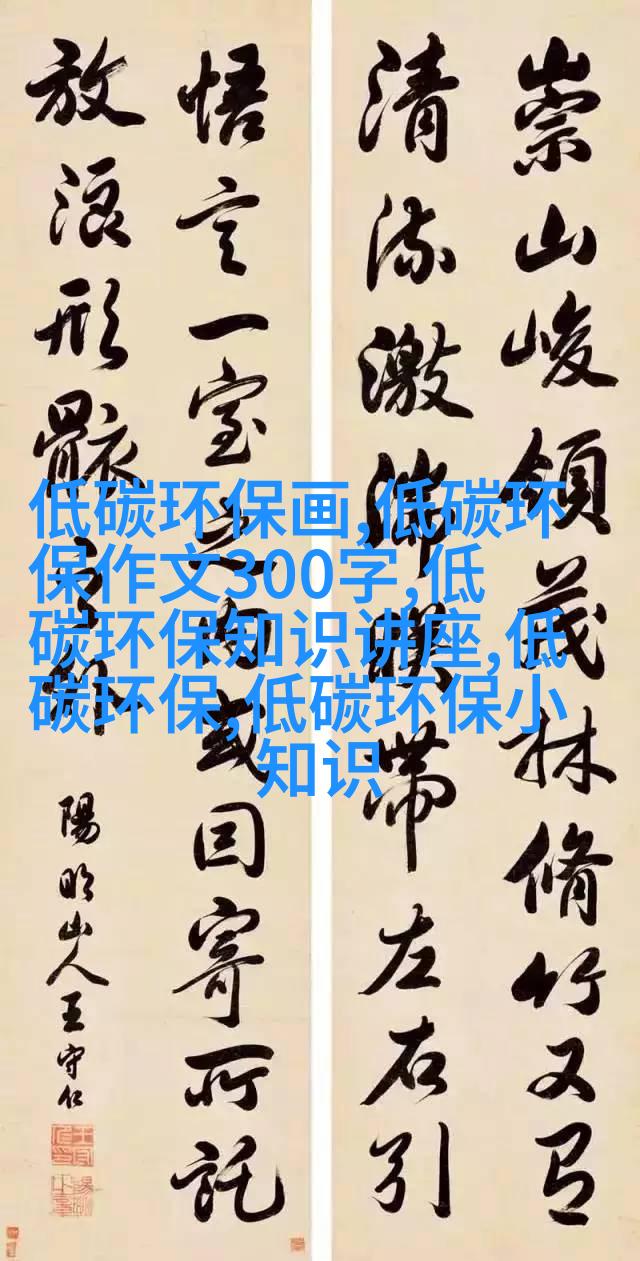 崇山峻領茂林脩竹又有
清流激湍暎帶左右引
悟言一室之內或因寄所託
放浪形骸之外
陽明山人王守仁
低碳环保画,低碳环
保作文300字,低
碳环保知识讲座,低
碳环保,低碳环保小
知识